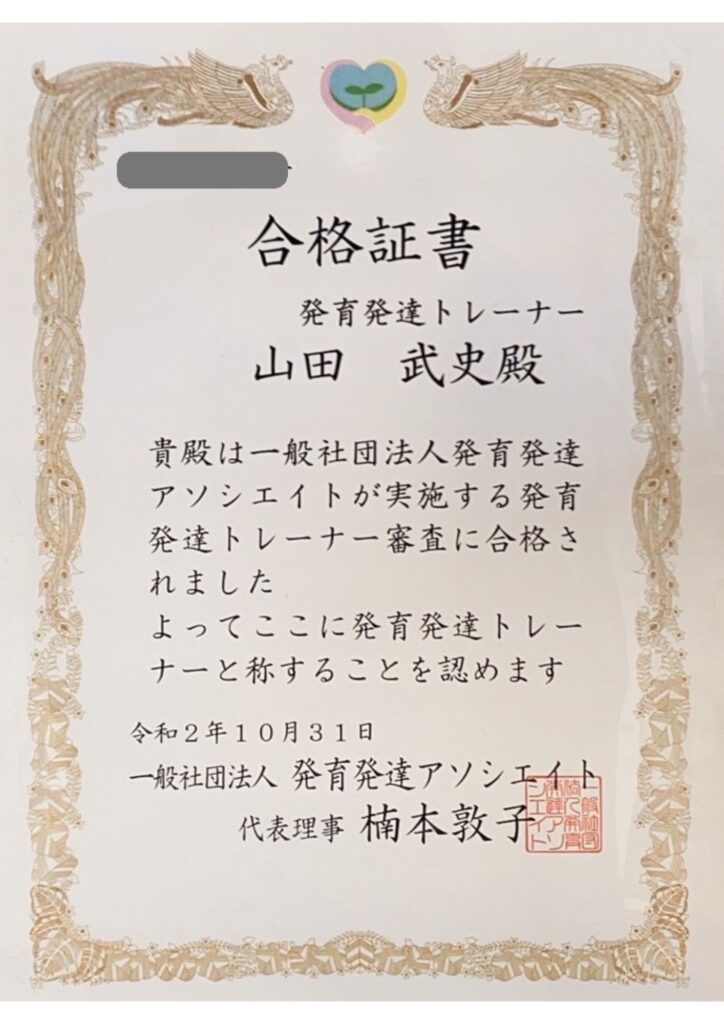 合格証書
発育発達トレーナー
山田 武史殿
貴殿は一般社団法人発育発達
アソシエイトが実施する発育
発達トレーナー審査に合格さ
れました
よってここに発育発達トレー
ナーと称することを認めます
令和2年10月31日
一般社団法人 発育発達アソシエイト
代表理事 楠本敦子
一般社団
法人発育
発達アソ
シエイト